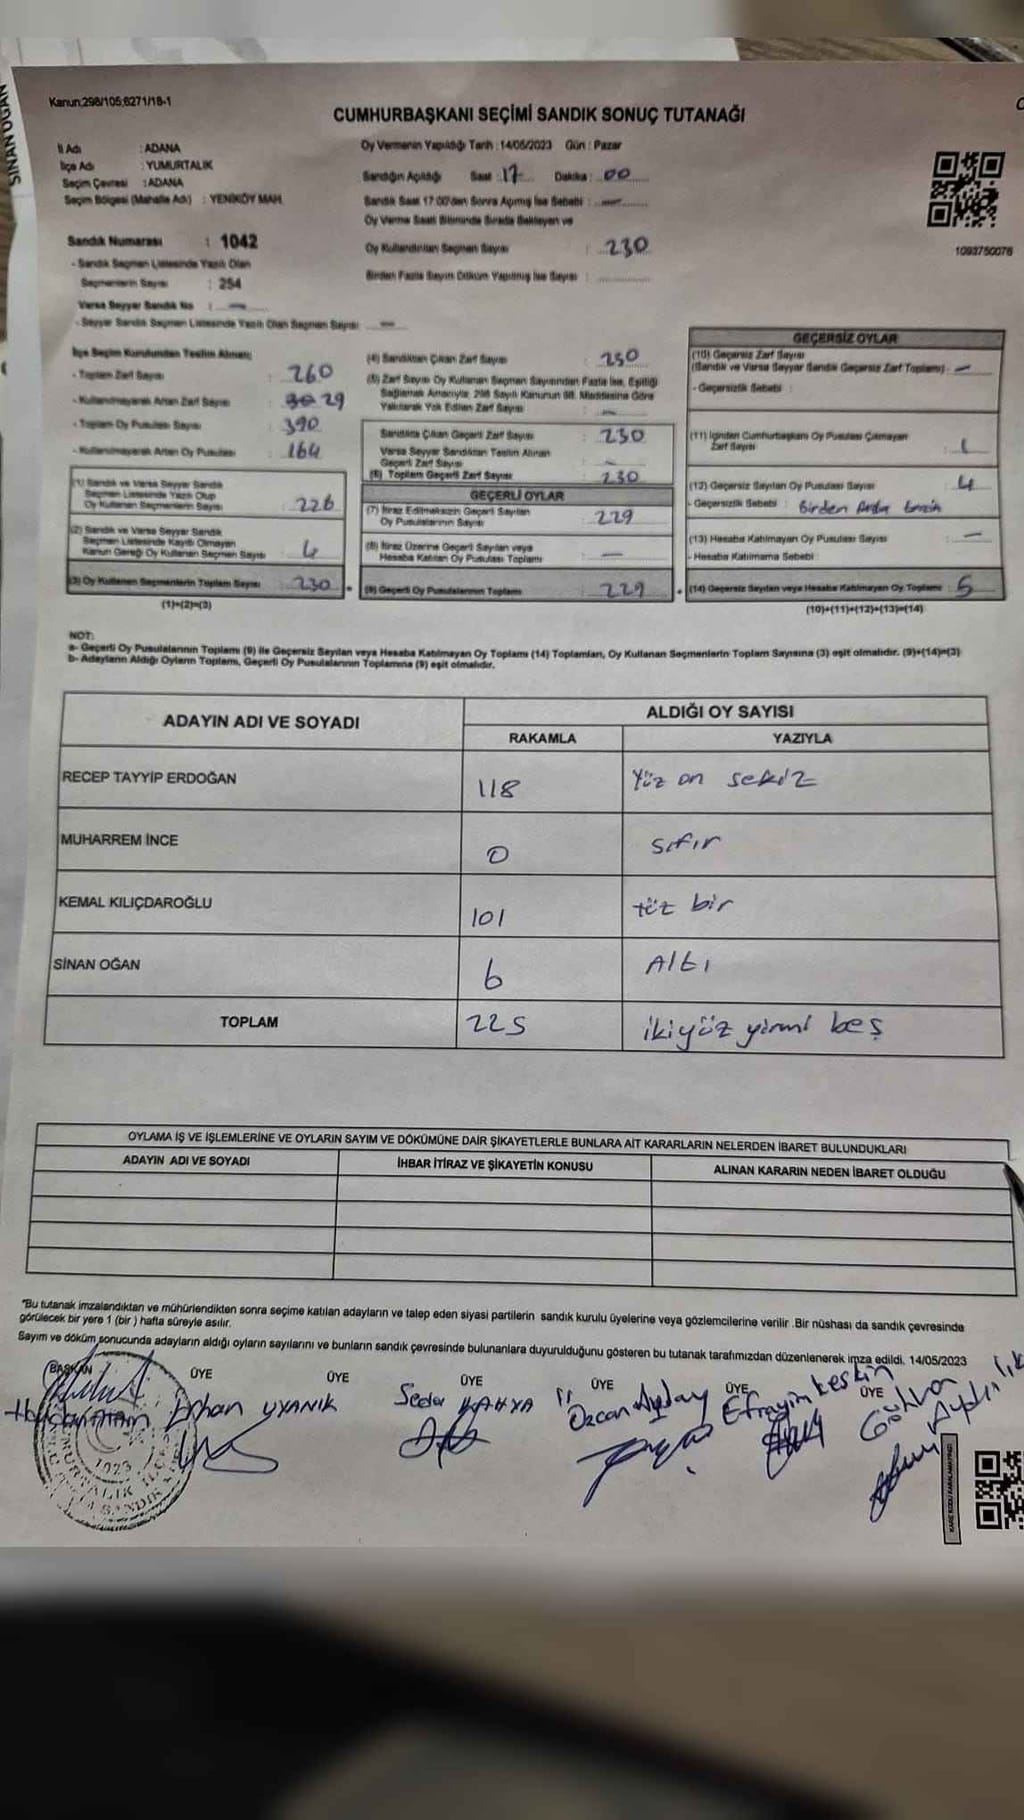 SİNAN OĞAN
Kanun;298/105;6271/18-1
CUMHURBAŞKANI SEÇİMİ SANDIK SONUÇ TUTANAĞI
İl Adı : ADANA
İlçe Adı : YUMURTALIK
Seçim Çevresi : ADANA
Seçim Bölgesi (Mahalle Adı) : YENİKÖY MAH.
Oy Vermenin Yapıldığı Tarih : 14/05/2023 Gün : Pazar
Sandığın Açıldığı Saat 17 Dakika : 00
Sandık Saat 17:00'den Sonra Açılmış İse Sebebi : —
Oy Verme Saati Bitiminde Sırada Bekleyen ve
Oy Kullandırılan Seçmen Sayısı : 230
Birden Fazla Sayım Döküm Yapılmış İse Sayısı :
1093750076
Sandık Numarası : 1042
- Sandık Seçmen Listesinde Yazılı Olan
Seçmenlerin Sayısı : 254
Varsa Seyyar Sandık No : —
- Seyyar Sandık Seçmen Listesinde Yazılı Olan Seçmen Sayısı —
İlçe Seçim Kurulundan Teslim Alınan;
- Toplam Zarf Sayısı : 260
- Kullanılmayarak Artan Zarf Sayısı : 30 29
- Toplam Oy Pusulası Sayısı : 390
- Kullanılmayarak Artan Oy Pusulası : 164
(1) Sandık ve Varsa Seyyar Sandık
Seçmen Listesinde Yazılı Olup
Oy Kullanan Seçmenlerin Sayısı : 226
(2) Sandık ve Varsa Seyyar Sandık
Seçmen Listesinde Kayıtlı Olmayan
Kanun Gereği Oy Kullanan Seçmen Sayısı : 4
(3) Oy Kullanan Seçmenlerin Toplam Sayısı : 230
(1)+(2)=(3)
(4) Sandıktan Çıkan Zarf Sayısı : 230
(5) Zarf Sayısı Oy Kullanan Seçmen Sayısından Fazla İse, Eşitliği
Sağlamak Amacıyla; 298 Sayılı Kanunun 98. Maddesine Göre
Yakılarak Yok Edilen Zarf Sayısı : —
Sandıkta Çıkan Geçerli Zarf Sayısı : 230
Varsa Seyyar Sandıktan Teslim Alınan
Geçerli Zarf Sayısı : —
(6) Toplam Geçerli Zarf Sayısı : 230
GEÇERLİ OYLAR
(7) İtiraz Edilmeksizin Geçerli Sayılan
Oy Pusulalarının Sayısı : 229
(8) İtiraz Üzerine Geçerli Sayılan veya
Hesaba Katılan Oy Pusulası Toplamı : —
(9) Geçerli Oy Pusulalarının Toplamı : 229
GEÇERSİZ OYLAR
(10) Geçersiz Zarf Sayısı
(Sandık ve Varsa Seyyar Sandık Geçersiz Zarf Toplamı) : —
- Geçersizlik Sebebi :
(11) İçinden Cumhurbaşkanı Oy Pusulası Çıkmayan
Zarf Sayısı : 1
(12) Geçersiz Sayılan Oy Pusulası Sayısı : 4
- Geçersizlik Sebebi : Birden
(13) Hesaba Katılmayan Oy Pusulası Sayısı : —
- Hesaba Katılmama Sebebi :
(14) Geçersiz Sayılan veya Hesaba Katılmayan Oy Toplamı : 5
(10)+(11)+(12)+(13)=(14)
NOT:
a- Geçerli Oy Pusulalarının Toplamı (9) ile Geçersiz Sayılan veya Hesaba Katılmayan Oy Toplamı (14) Toplamları, Oy Kullanan Seçmenlerin Toplam Sayısına (3) eşit olmalıdır. (9)+(14)=(3)
b- Adayların Aldığı Oyların Toplamı, Geçerli Oy Pusulalarının Toplamına (9) eşit olmalıdır.
ADAYIN ADI VE SOYADI
ALDIĞI OY SAYISI
RAKAMLA YAZIYLA
RECEP TAYYİP ERDOĞAN 118 Yüz on sekiz
MUHARREM İNCE 0 sıfır
KEMAL KILIÇDAROĞLU 101 yüz bir
SİNAN OĞAN 6 Altı
TOPLAM 225 ikiyüz yirmi beş
OYLAMA İŞ VE İŞLEMLERİNE VE OYLARIN SAYIM VE DÖKÜMÜNE DAİR ŞİKAYETLERLE BUNLARA AİT KARARLARIN NELERDEN İBARET BULUNDUKLARI
ADAYIN ADI VE SOYADI İHBAR İTİRAZ VE ŞİKAYETİN KONUSU ALINAN KARARIN NEDEN İBARET OLDUĞU
"Bu tutanak imzalandıktan ve mühürlendikten sonra seçime katılan adayların ve talep eden siyasi partilerin sandık kurulu üyelerine veya gözlemcilerine verilir .Bir nüshası da sandık çevresinde
görülecek bir yere 1 (bir ) hafta süreyle asılır.
Sayım ve döküm sonucunda adayların aldığı oyların sayılarını ve bunların sandık çevresinde bulunanlara duyurulduğunu gösteren bu tutanak tarafımızdan düzenlenerek imza edildi. 14/05/2023
BAŞKAN ÜYE ÜYE ÜYE ÜYE ÜYE ÜYE
Orhan UYANIK Seda KAHYA Özcan Ayday Efrayim keskin Gökhan
1923
KARE KODU KARALAMAYINIZ